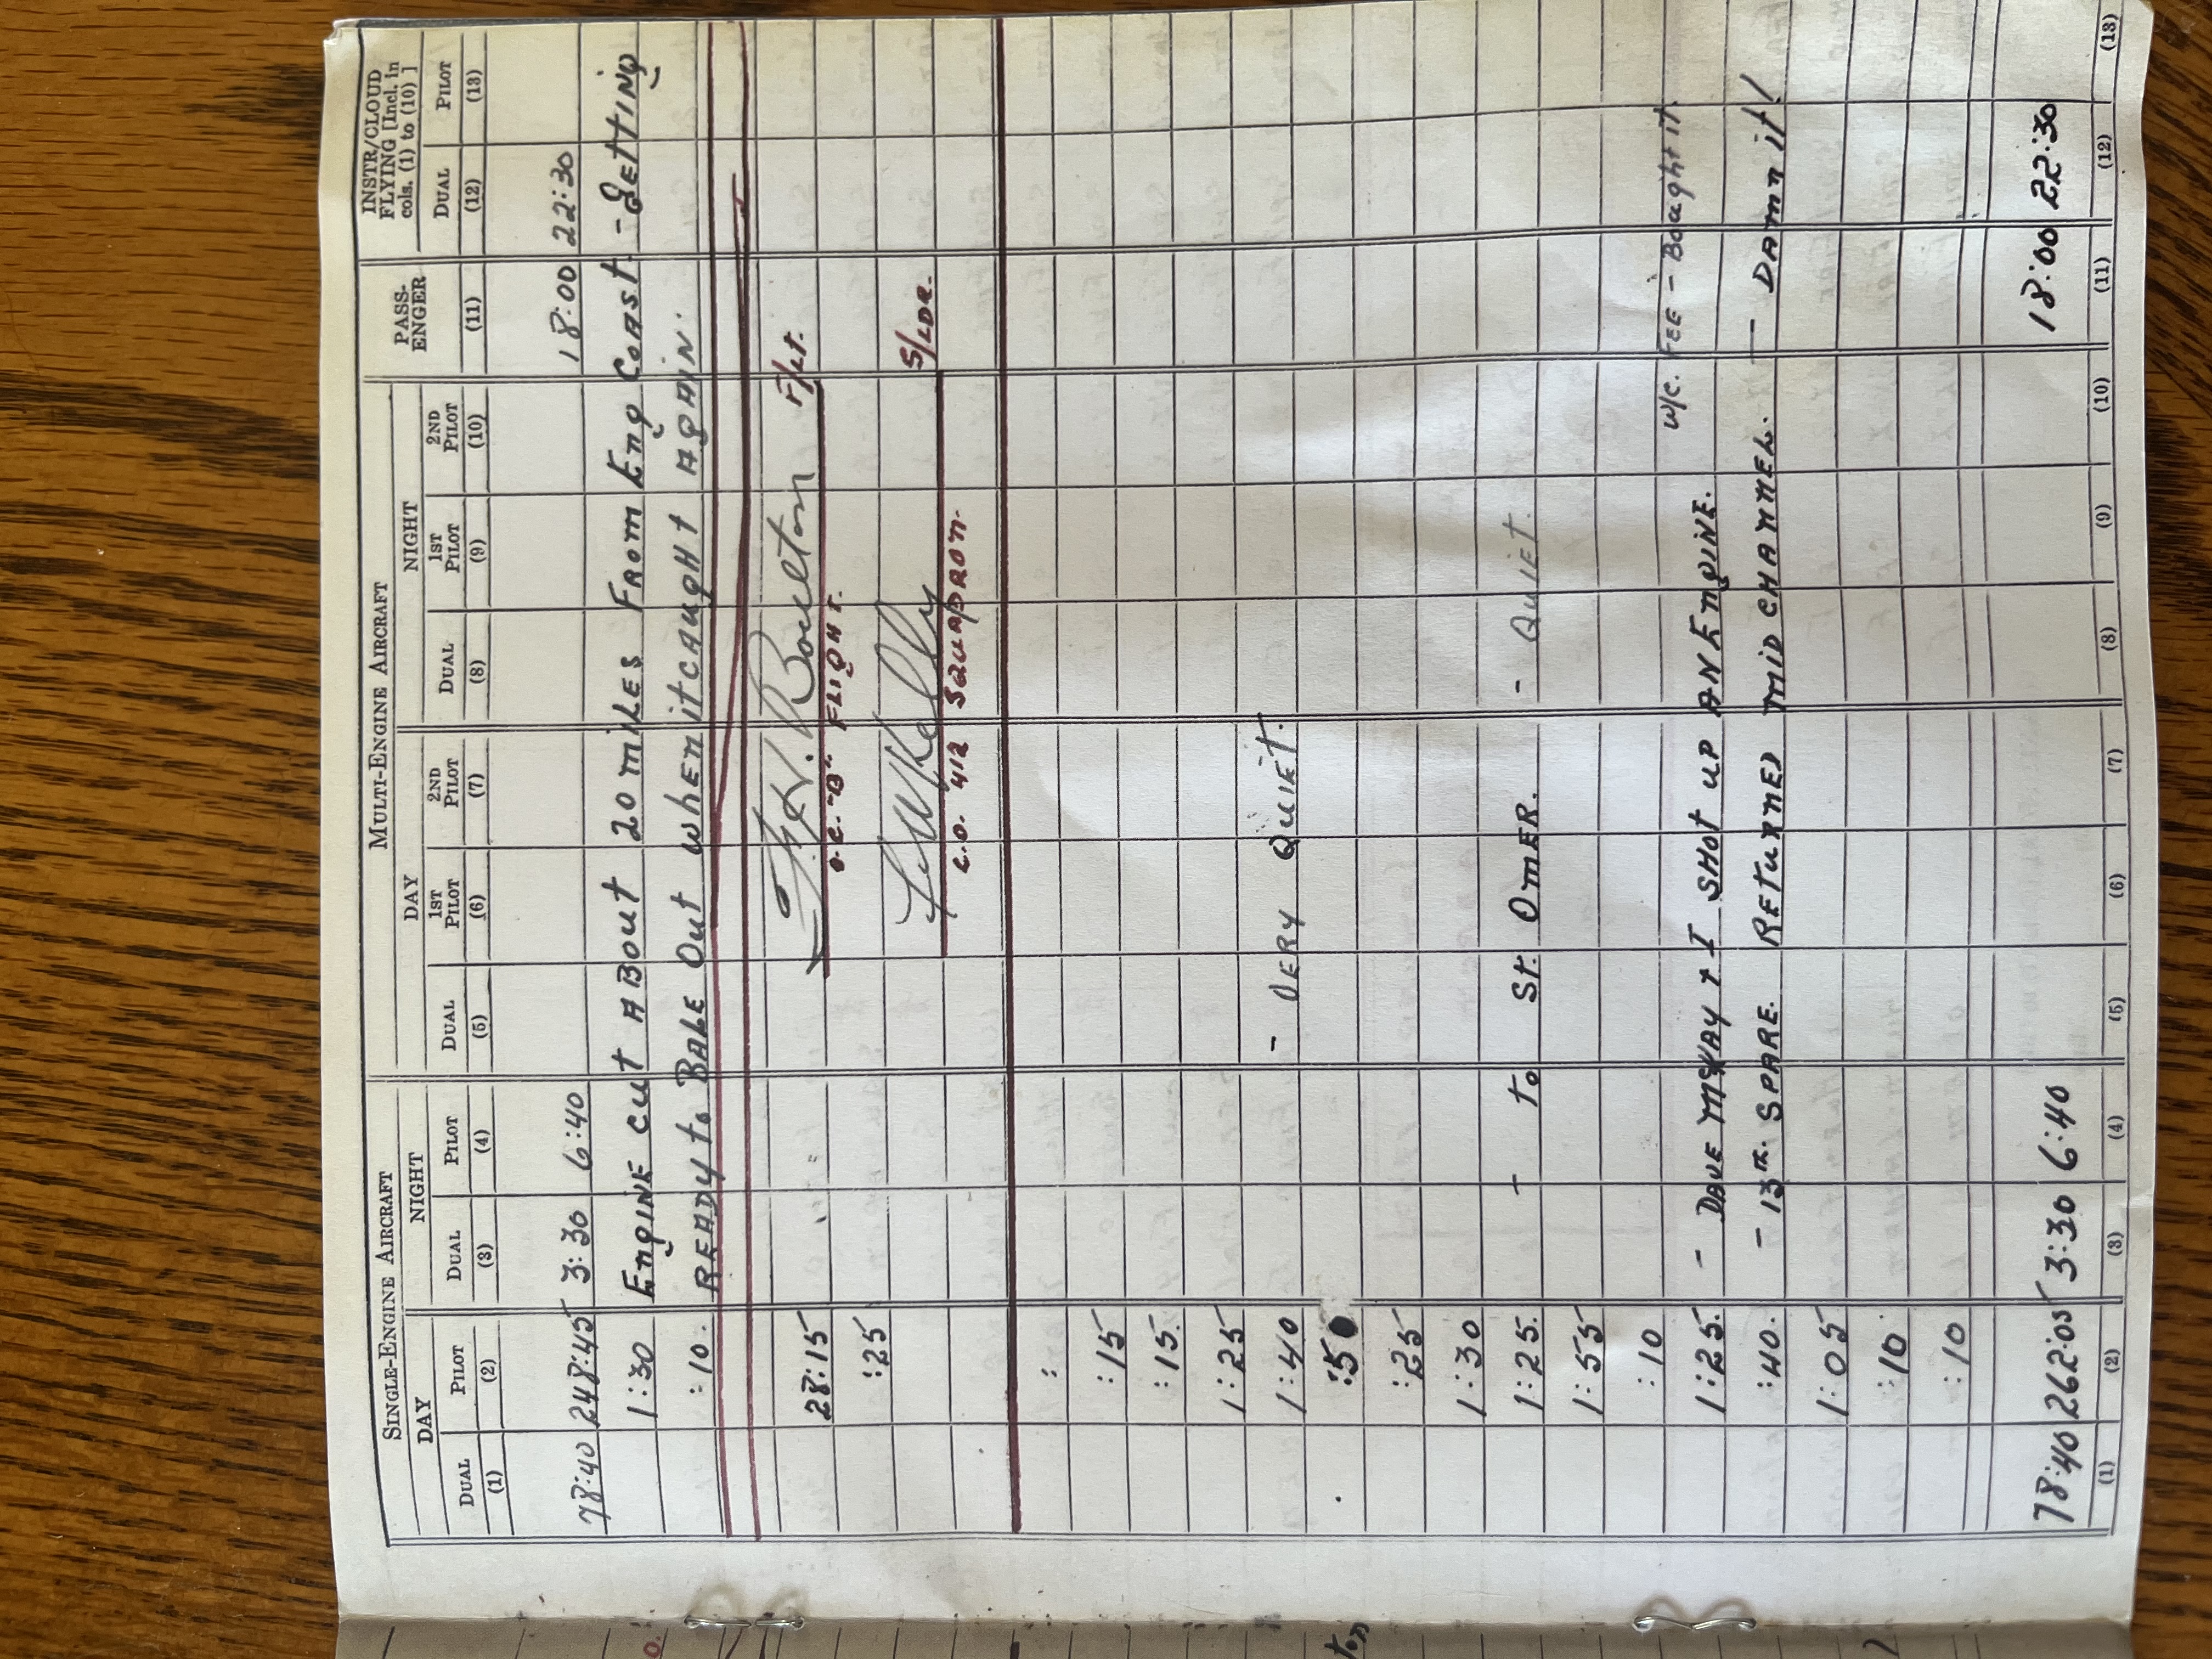 SINGLE-ENGINE AIRCRAFT MULTI-ENGINE AIRCRAFT PASS-ENGER INSTR/CLOUD FLYING [Incl. in cols. (1) to (10) ]
DAY NIGHT DAY NIGHT
DUAL PILOT DUAL PILOT DUAL 1ST PILOT 2ND PILOT DUAL 1ST PILOT 2ND PILOT DUAL PILOT
(1) (2) (3) (4) (5) (6) (7) (8) (9) (10) (11) (12) (13)
78:40 248:45 3:30 6:40 18:00 22:30
1:30 ENGINE CUT ABOUT 20 MILES FROM ENG COAST - GETTING
:10 READY to BALE OUT WHEN it CAUGHT AGAIN.
28:15 Boulton F/Lt.
O.C. "B" FLIGHT.
:25 Kelly S/LDR.
C.O. 412 SQUADRON.
:
:15
:15.
1:25
1:40 - VERY QUIET.
:50
:25
1:30
1:25. - to St. OMER. - QUIET.
1:55
:10 W/C. FEE - Bought it.
1:25. - DAVE McKAY + I SHOT UP AN ENGINE.
:40. - 13TH. SPARE. RETURNED MID CHANNEL. — DAMN it!
1:05
:10
:10
78:40 262:05 3:30 6:40 18:00 22:30
(1) (2) (3) (4) (5) (6) (7) (8) (9) (10) (11) (12) (13)
ton